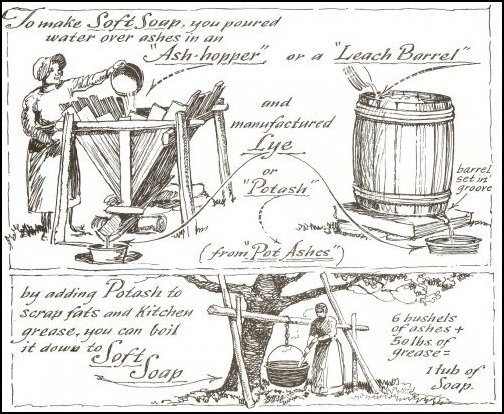 To make Soft Soap, you poured
water over ashes in an
"Ash-hopper" or a "Leach Barrel"
and
manufactured
Lye
or
"Potash"
(from "Pot Ashes")
barrel
set in
groove
by adding Potash to
scrap fats and kitchen
grease, you can boil
it down to
Soft
Soap
6 bushels
of ashes +
50 lbs. of
grease =
1 tub of
Soap.